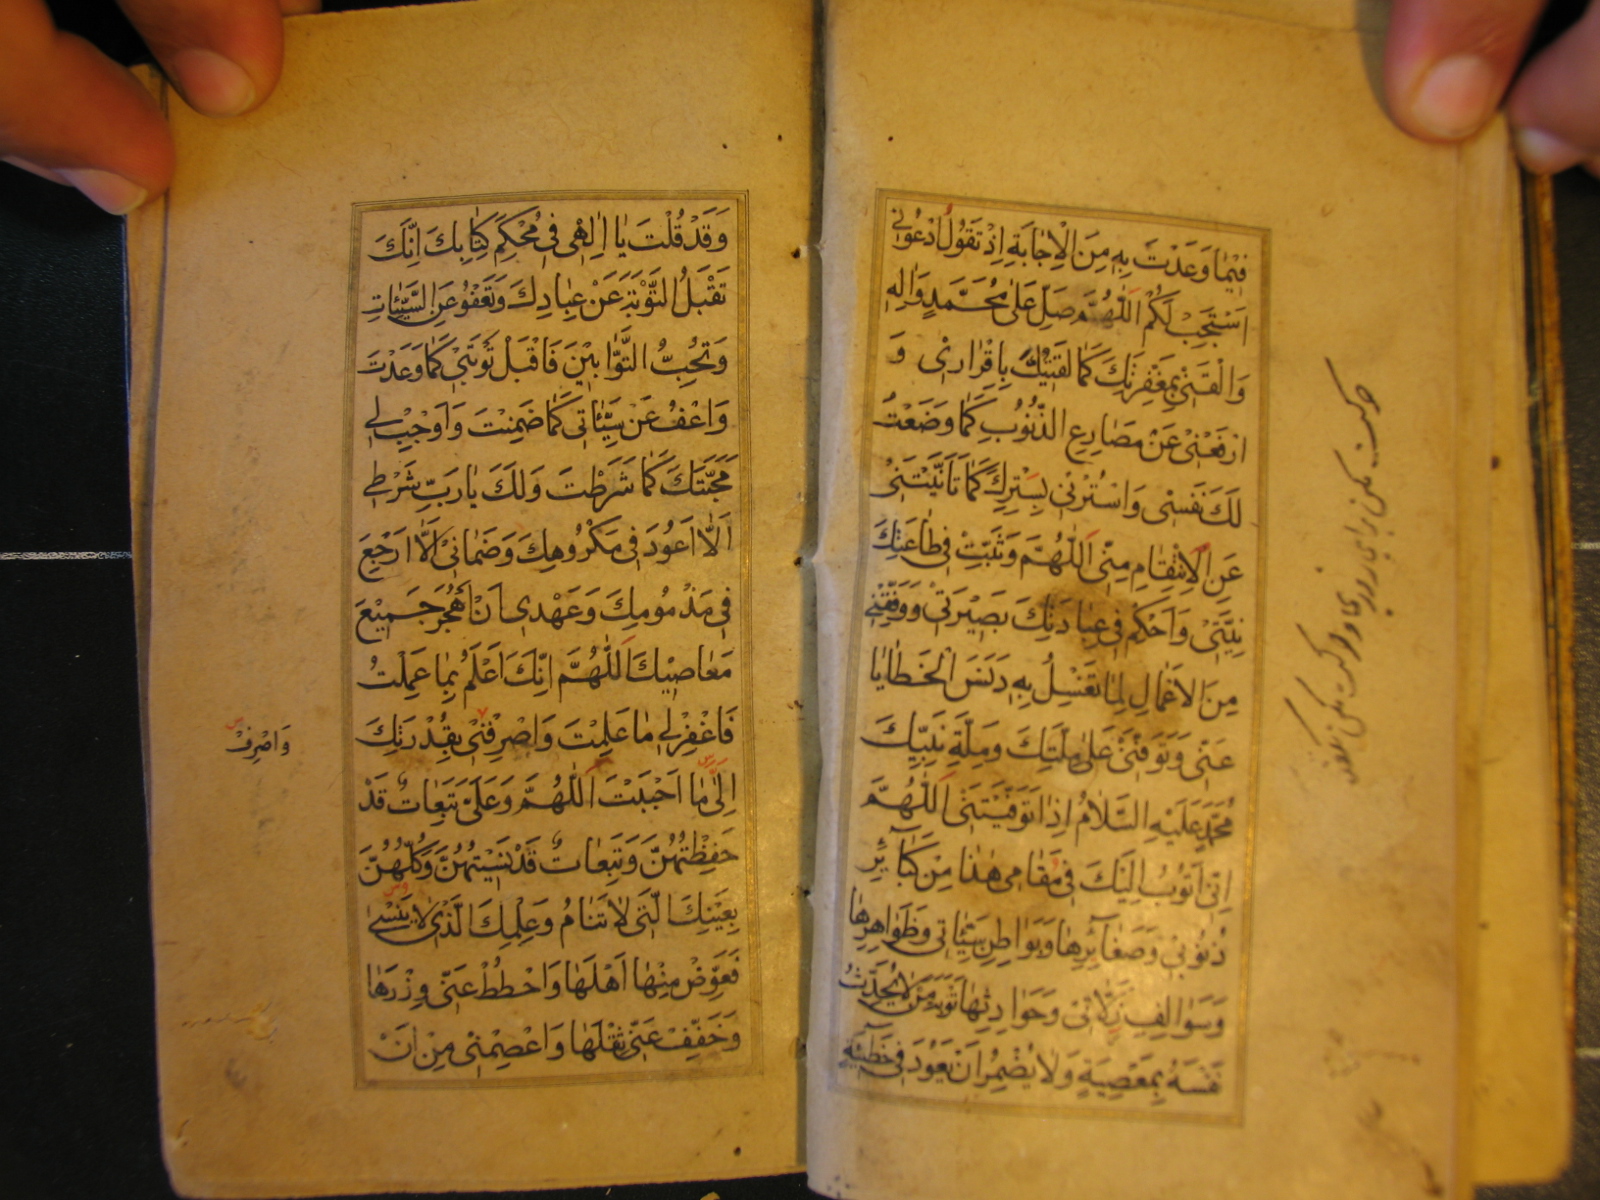 فِيمَا وَعَدْتَ بِهِ مِنَ الْاِجَابَةِ اِذْ تَقُولُ ادْعُوْنِي
اَسْتَجِبْ لَكُمْ اَللّٰهُمَّ صَلِّ عَلٰى مُحَمَّدٍ وَاٰلِهِ
وَالْقَنِىْ بِمَغْفِرَتِكَ كَمَا لَقِيتُكَ بِاِقْرَارِىْ وَ
ارْفَعْنِىْ عَنْ مَصَارِعِ الذُّنُوْبِ كَمَا وَضَعْتُ
لَكَ نَفْسِىْ وَاسْتُرْنِىْ بِسِتْرِكَ كَمَا تَاَنَّيْتَنِىْ
عَنِ الْاِنْتِقَامِ مِنِّى اَللّٰهُمَّ وَثَبِّتْ فِى طَاعَتِكَ
نِيَّتِىْ وَاَحْكِمْ فِى عِبَادَتِكَ بَصِيْرَتِىْ وَوَفِّقْنِىْ
مِنَ الْاَعْمَالِ لِمَا تَغْسِلُ بِهِ دَنَسَ الْخَطَايَا
عَنِّى وَتَوَفَّنِىْ عَلٰى مِلَّتِكَ وَمِلَّةِ نَبِيِّكَ
مُحَمَّدٍ عَلَيْهِ السَّلَامُ اِذَا تَوَفَّيْتَنِى اَللّٰهُمَّ
اِنِّى اَتُوْبُ اِلَيْكَ فِى مَقَامِى هٰذَا مِنْ كَبَآئِرِ
ذُنُوْبِىْ وَصَغَآئِرِهَا وَبَوَاطِنِ سَيِّئَاتِى وَظَوَاهِرِهَا
وَسَوَالِفِ زَلَّاتِىْ وَحَوَادِثِهَا تَوْبَةَ مَنْ لَا يُحَدِّثُ
نَفْسَهُ بِمَعْصِيَةٍ وَلَا يُضْمِرُ اَنْ يَعُوْدَ فِى خَطِيْئَةٍ
وَقَدْ قُلْتَ يَا اِلٰهِى فِى مُحْكَمِ كِتَابِكَ اِنَّكَ
تَقْبَلُ التَّوْبَةَ عَنْ عِبَادِكَ وَتَعْفُوْ عَنِ السَّيِّئَاتِ
وَتُحِبُّ التَّوَّابِيْنَ فَاقْبَلْ تَوْبَتِىْ كَمَا وَعَدْتَ
وَاعْفُ عَنْ سَيِّئَاتِى كَمَا ضَمِنْتَ وَاَوْجِبْ لِى
مَحَبَّتَكَ كَمَا شَرَطْتَ وَلَكَ يَا رَبِّ شَرْطِى
اَلَّا اَعُوْدَ فِى مَكْرُوْهِكَ وَضَمَانِىْ اَلَّا اَرْجِعَ
فِى مَذْمُوْمِكَ وَعَهْدِى اَنْ اَهْجُرَ جَمِيْعَ
مَعَاصِيْكَ اَللّٰهُمَّ اِنَّكَ اَعْلَمُ بِمَا عَمِلْتُ
فَاغْفِرْ لِى مَا عَلِمْتَ وَاصْرِفْنِىْ بِقُدْرَتِكَ
وَاصْرِفْ
اِلٰى مَا اَحْبَبْتَ اَللّٰهُمَّ وَعَلَىَّ تَبِعَاتٌ قَدْ
حَفِظْتُهُنَّ وَتَبِعَاتٌ قَدْ نَسِيْتُهُنَّ وَكُلُّهُنَّ
بِعَيْنِكَ الَّتِى لَا تَنَامُ وَعِلْمِكَ الَّذِى لَا يَنْسٰى
فَعَوِّضْ مِنْهَا اَهْلَهَا وَاحْطُطْ عَنِّى وِزْرَهَا
وَخَفِّفْ عَنِّى ثِقْلَهَا وَاعْصِمْنِى مِنْ اَنْ